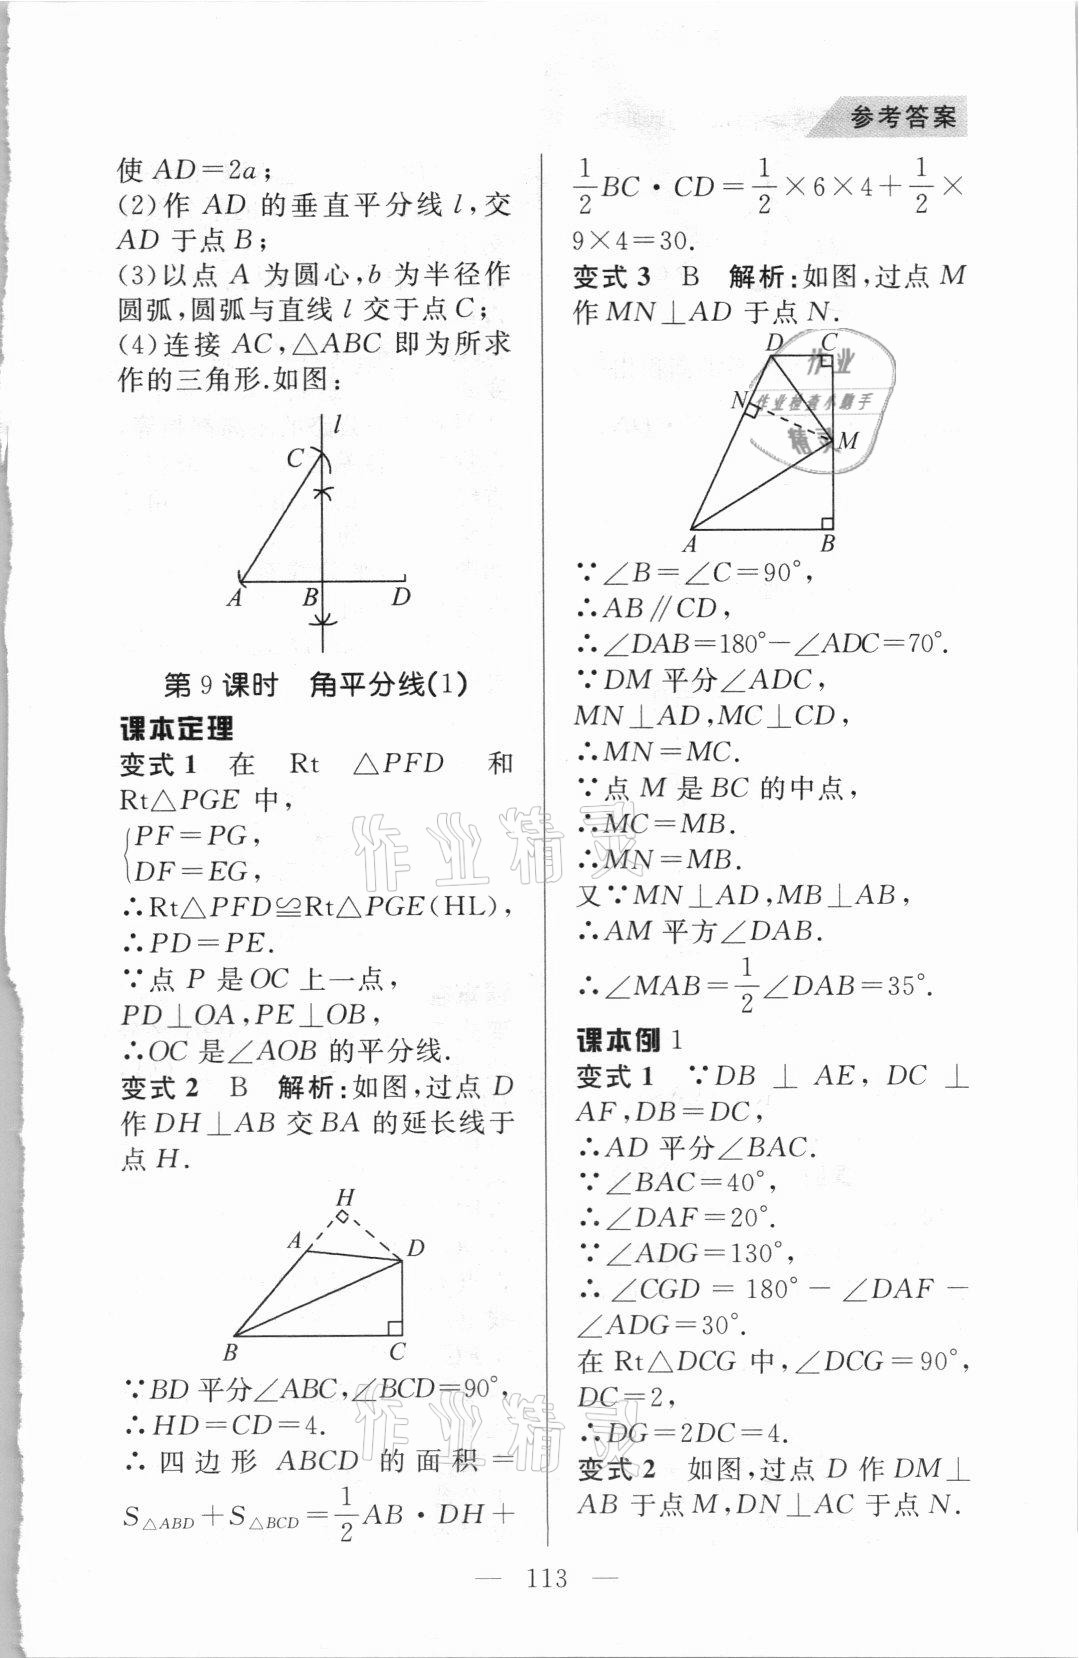 参考答案
使 AD=2a；
(2)作 AD 的垂直平分线 l，交
AD 于点 B；
(3)以点 A 为圆心，b 为半径作
圆弧，圆弧与直线 l 交于点 C；
(4)连接 AC，△ABC 即为所求
作的三角形.如图：
l
C
A B D
第 9 课时 角平分线(1)
课本定理
变式 1 在 Rt △PFD 和
Rt△PGE 中，
{PF=PG，
DF=EG，
∴Rt△PFD≌Rt△PGE(HL)，
∴PD=PE.
∵点 P 是 OC 上一点，
PD⊥OA，PE⊥OB，
∴OC 是∠AOB 的平分线.
变式 2 B 解析：如图，过点 D
作 DH⊥AB 交 BA 的延长线于
点 H.
H
A D
B C
∵BD 平分∠ABC，∠BCD=90°，
∴HD=CD=4.
∴四边形 ABCD 的面积=
S△ABD+S△BCD=1/2AB·DH+
1/2BC·CD=1/2×6×4+1/2×
9×4=30.
变式 3 B 解析：如图，过点 M
作 MN⊥AD 于点 N.
D C
作业
N 作业检查小助手
精灵 M
A B
∵∠B=∠C=90°，
∴AB∥CD，
∴∠DAB=180°−∠ADC=70°.
∵DM 平分∠ADC，
MN⊥AD，MC⊥CD，
∴MN=MC.
∵点 M 是 BC 的中点，
∴MC=MB.
∴MN=MB.
又∵MN⊥AD，MB⊥AB，
∴AM 平方∠DAB.
∴∠MAB=1/2∠DAB=35°.
课本例 1
变式 1 ∵DB ⊥ AE，DC ⊥
AF，DB=DC，
∴AD 平分∠BAC.
∵∠BAC=40°，
∴∠DAF=20°.
∵∠ADG=130°，
∴∠CGD = 180° − ∠DAF −
∠ADG=30°.
在 Rt△DCG 中，∠DCG=90°，
DC=2，
∴DG=2DC=4.
变式 2 如图，过点 D 作 DM⊥
AB 于点 M，DN⊥AC 于点 N.
作业精灵
作业精灵
— 113 —